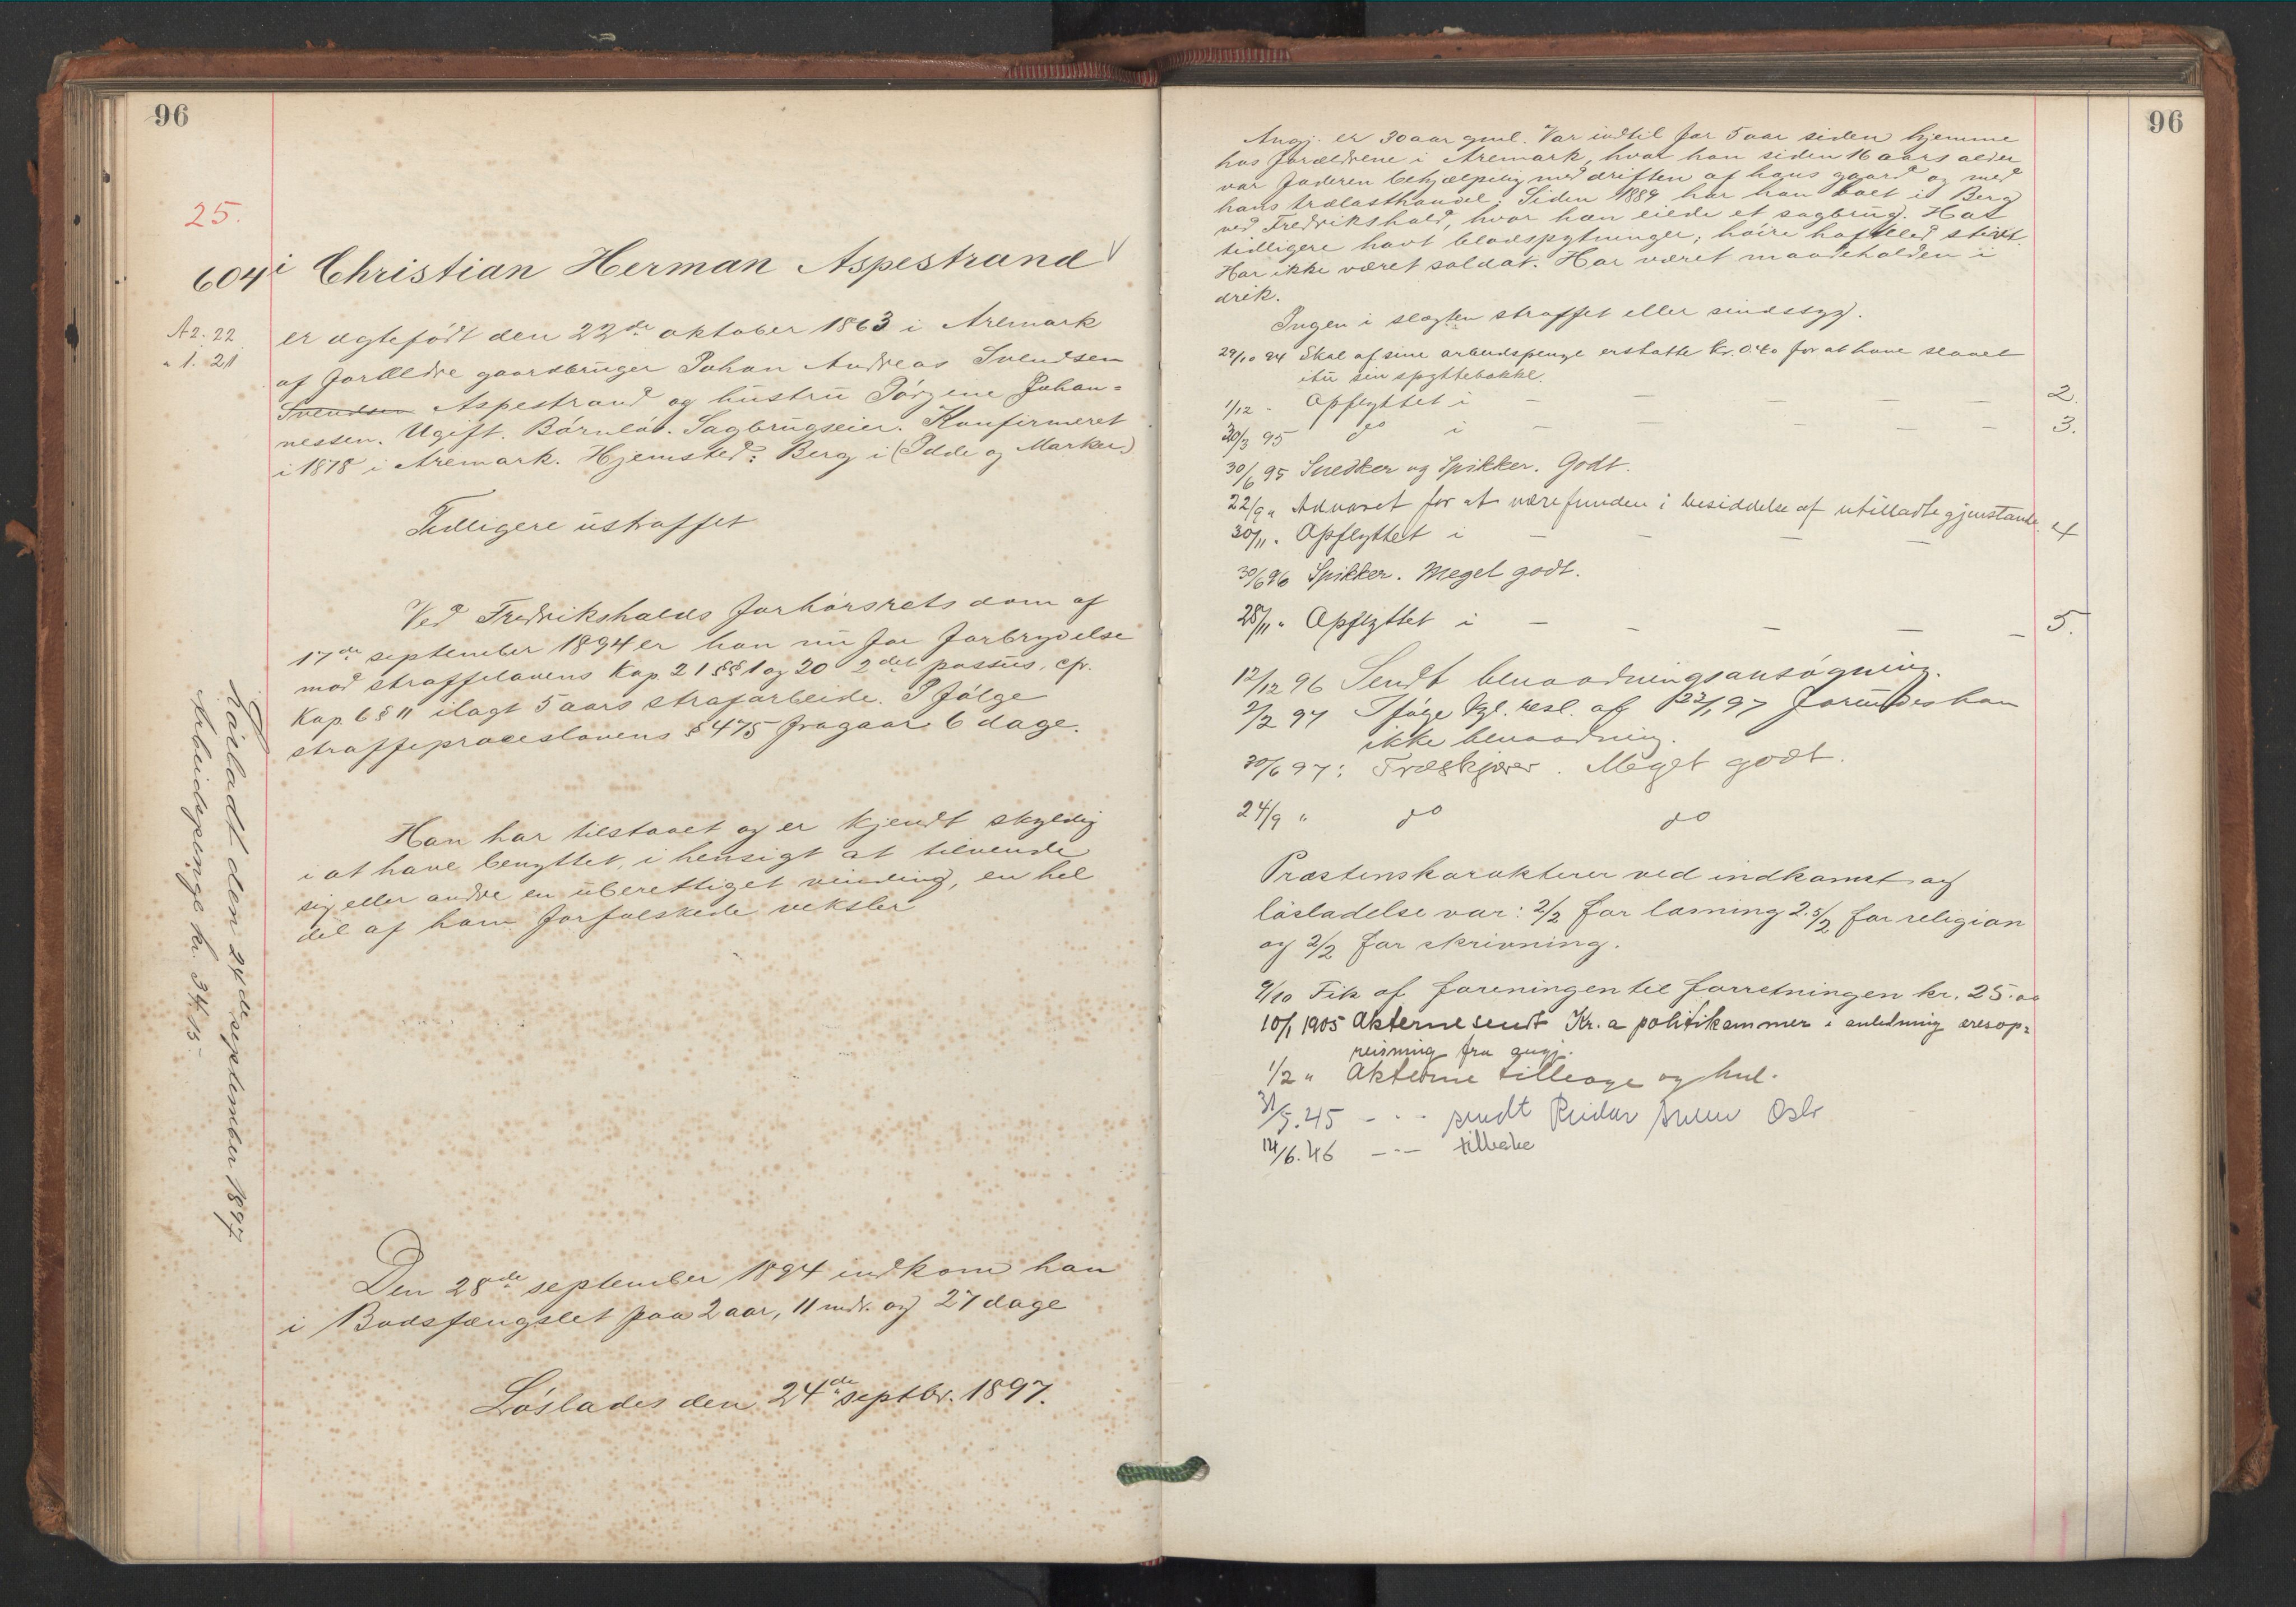 96
25.
604i Christian Herman Aspestrand
A2. 22
" 1. 21
er ægtefödt den 22de oktober 1863 i Aremark
af forældre gaardbruger Johan Andreas Svendsen
Svendsen Aspestrand og hustru Jörgine Johan=
nessen. Ugift. Börnlös. Sagbrugseier. Konfirmeret
i 1878 i Aremark. Hjemsted: Berg i (Idde og Marker)
Tidligere ustraffet
Ved Fredrikshalds forhörsrets dom af
17de september 1894 er han nu for forbrydelse
mod straffelovens Kap. 21 §§ 1 og 20 2det passus, cfr.
Kap 6 § 11 ilagt 5 aars strafarbeide. I fölge
straffeproceslovens § 475 fragaar 6 dage.
Han har tilstaaet og er kjendt skyldig
i at have benyttet, i hensigt at tilvende
sig eller andre en uberettiget vinding, en hel
del af ham forfalskede veksler
Den 28de september 1894 indkom han
i Bodsfængslet paa 2 aar, 11 mdr. og 27 dage
Löslades den 24de septbr. 1897.
Lösladt den 24de september 1897
Arbeidspenge kr. 34.15.
96
Angj. er 30 aar gml. Var indtil for 5 aar siden hjemme
hos forældrene i Aremark, hvor han siden 16 aars alder
var faderen behjælpelig med driften af hans gaard og med
hans trælasthandel. Siden 1889 har han boet i Berg
ved Fredrikshald, hvor han eiede et sagbrug. Har
tidligere havt blodspytninger; höire hofteled stivt.
Har ikke været soldat. Har været maadeholden i
drik.
Ingen i slægten straffet eller sindssyg.
29/10 94 Skal af sine arbeidspenge erstatte kr. 0.40 for at have slaaet
itu sin spyttebakke.
1/12 - Opflyttet i — — — — — 2.
30/3 95 do i — — — — — 3.
30/6 95 Snedker og Spikker. Godt.
22/9 " Advaret for at være funden i besiddelse af utilladte gjenstande.
30/11 " Opflyttet i — — — — 4
30/6 96 Spikker. Meget godt.
28/11 " Opflyttet i — — — — — 5.
12/12 96 Sendt benaadningsansögning.
2/2 97 Ifölge kgl. resl. af 22/1 97 forundes han
ikke benaadning.
30/6 97: Træskjærer. Meget godt.
24/9 " do do
Præstens karakterer ved indkomst og
lösladelse var: 2/2 for læsning 2.5/2 for religion
og 2/2 for skrivning.
9/10 Fik af foreningen til forretningen kr. 25.00
10/1 1905 Akterne sendt Kr.a politikammer i anledning æresop=
reisning fra angj.
1/2 " Akterne tilbage og hul.
31/5.45 - " - sendt Reidar Oslo
14/6.46 - " - tilbake